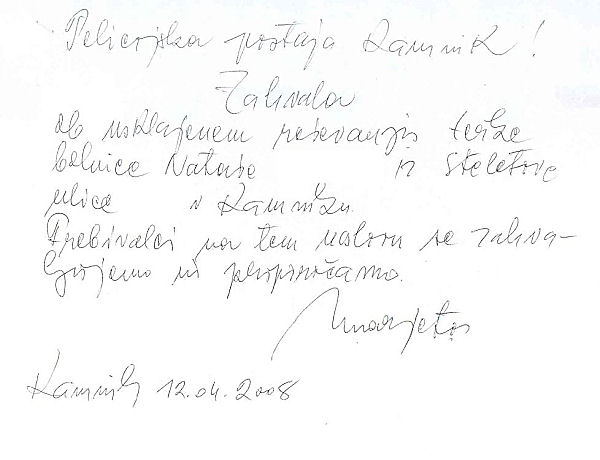 Policijska postaja Kamnik!
Zahvala
ob usklajenem reševanju težke
bolnice Nataše iz Steletove
ulice v Kamniku.
Prebivalci na tem naslovu se zahva-
ljujemo in priporočamo.
Marjeta
Kamnik 12.04.2008